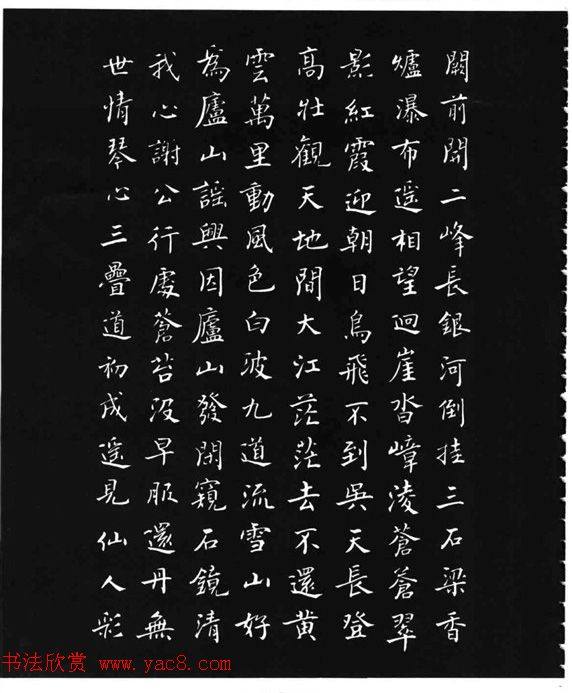 闕前開二峰長銀河倒挂三石梁香
爐瀑布遥相望迴崖沓嶂凌蒼蒼翠
影紅霞迎朝日鳥飛不到吳天長登
高壯觀天地間大江茫茫去不還黄
雲萬里動風色白波九道流雪山好
為廬山謡興因廬山發閑窺石鏡清
我心謝公行處蒼苔没早服還丹無
世情琴心三疊道初成遥見仙人彩
书法欣赏 www.yac8.com